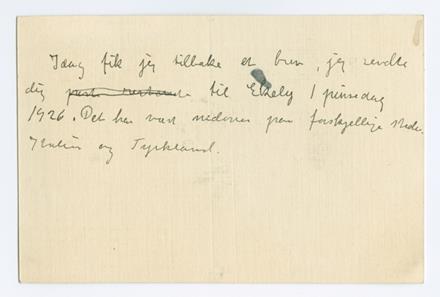 Idag fik jeg tilbake et brev, jeg sendte
dig til Ekely 1 pinsedag
1926. Det har vært nedover paa forskjellige steder
Italien og Tyrkland.